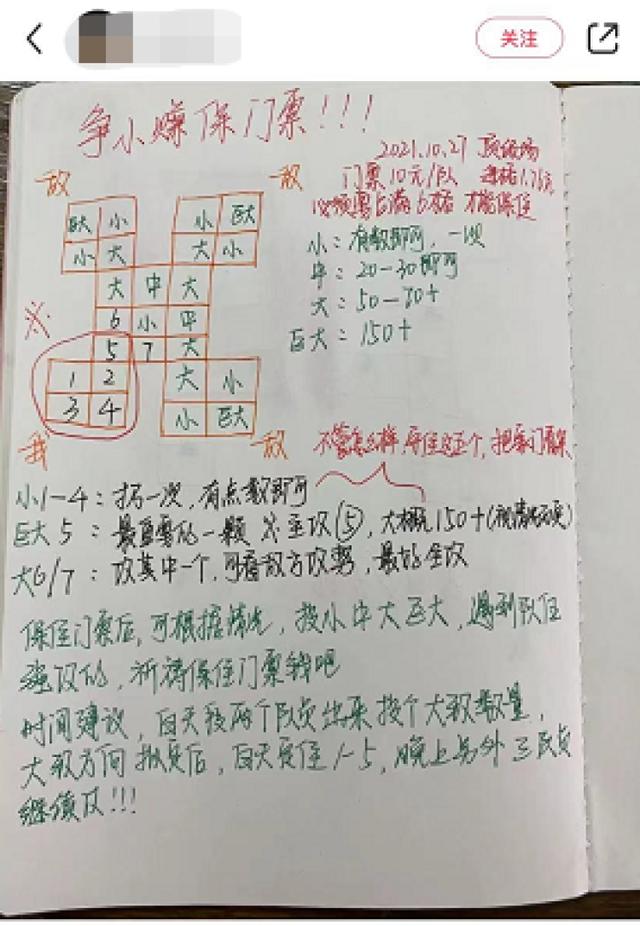 关注
争小赚保门票!!!
2021.10.27 顶级场
门票10元/队
敌 敌
巨大 小 小 巨大
小 大 大 小
大 中 大
6 小 中
5 7 大
1 2 大 小
3 4 小 巨大
小:有数即可,一次
中:20-30即可
大:50-70+
巨大:150+
※
我 敌
不管怎么样,守住这五个,把票门看保
小1-4:打一次,有点数即可
巨大5:最重要的一颗 必主攻(5),大概150+(视情况而变)
大6/7:攻其中一个,可看敌方攻势,最好全攻
保住门票后,可根据情况,投小中大巨大,遇到队住
强攻的,祈祷保住门票钱吧
时间建议,白天段两个队员出来按个大致数量,
大致方向 后,白天守住1-5,晚上另外三队员
继续攻!!!